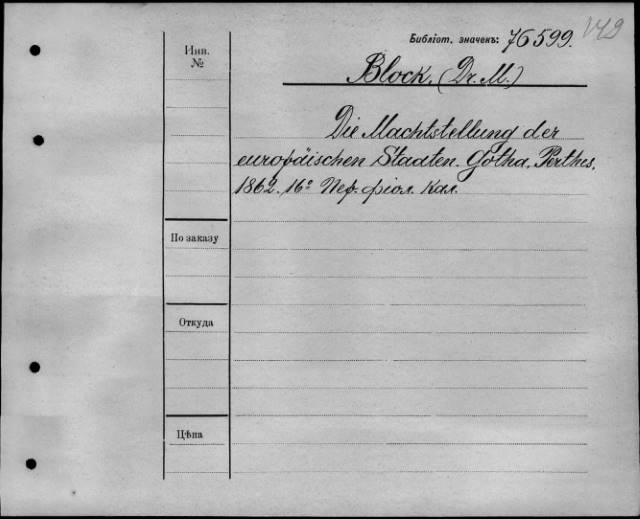 Библіот. значекъ: 76599.
Инв.
№
Block. (Dr. M.)
Die Machtstellung der
europäischen Staaten. Gotha, Perthes,
1862. 16º Пер. фіол. кал.
По заказу
Откуда
Цѣна